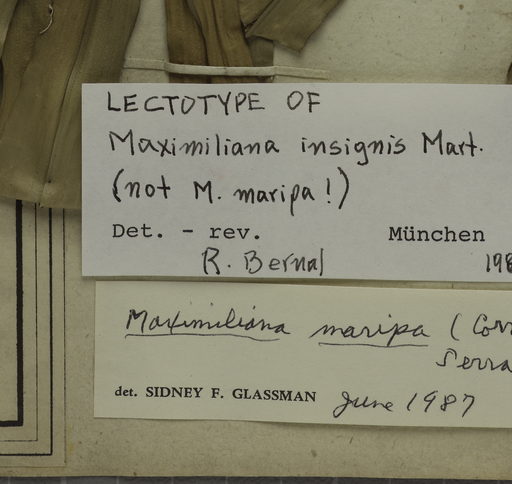 LECTOTYPE OF
Maximiliana insignis Mart.
(not M. maripa!)
Det. - rev. München
R. Bernal 198
Maximiliana maripa (Corr
Serra
det. SIDNEY F. GLASSMAN June 1987